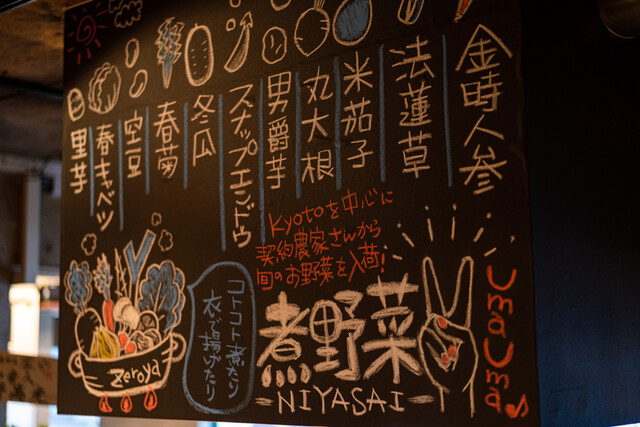 金時人参
法蓮草
米茄子
丸大根
男爵芋
スナップエンドウ
冬瓜
春菊
空豆
春キャベツ
里芋
Kyotoを中心に
契約農家さんから
旬のお野菜を入荷!
煮野菜
-NIYASAI-
UmaUma♪
コトコト煮たり
衣で揚げたり
Zeroya